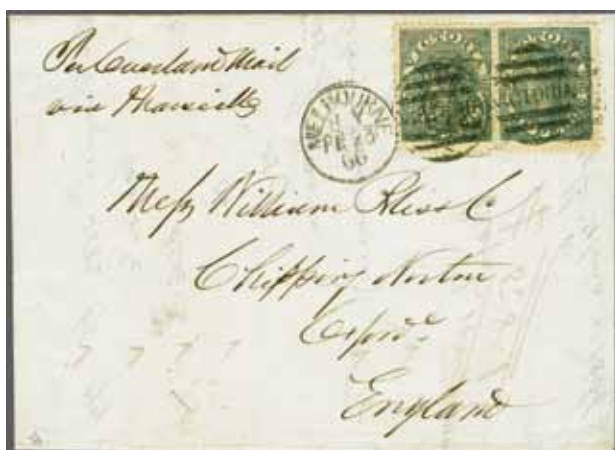 Per Overland Mail
via Marseille
VICTORIA
VICTORIA
MELBOURNE
66
VICTORIA
Mess William Bliss Co
Chipping Norton
England